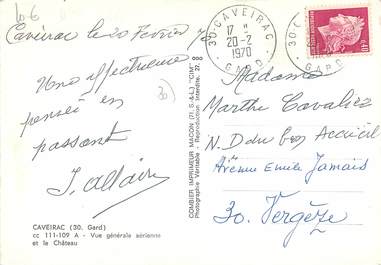 10-6
Cavéirac le 20 Février 70
Une affectueuse
pensée en
passant
J. Allaire
30
CAVEIRAC (30. Gard)
cc 111-109 A - Vue générale aérienne
et le Château
COMBIER IMPRIMEUR MACON (71. S.-&-L.) "CIM"
Photographie Véritable - Reproduction Interdite. 27.
30-CAVEIRAC
17 H
20-2
1970
GARD
Madame
Marthe Cavalier
N. D du bon Accueil
Avenue Emile Jamais
30. Vergèze
0,40